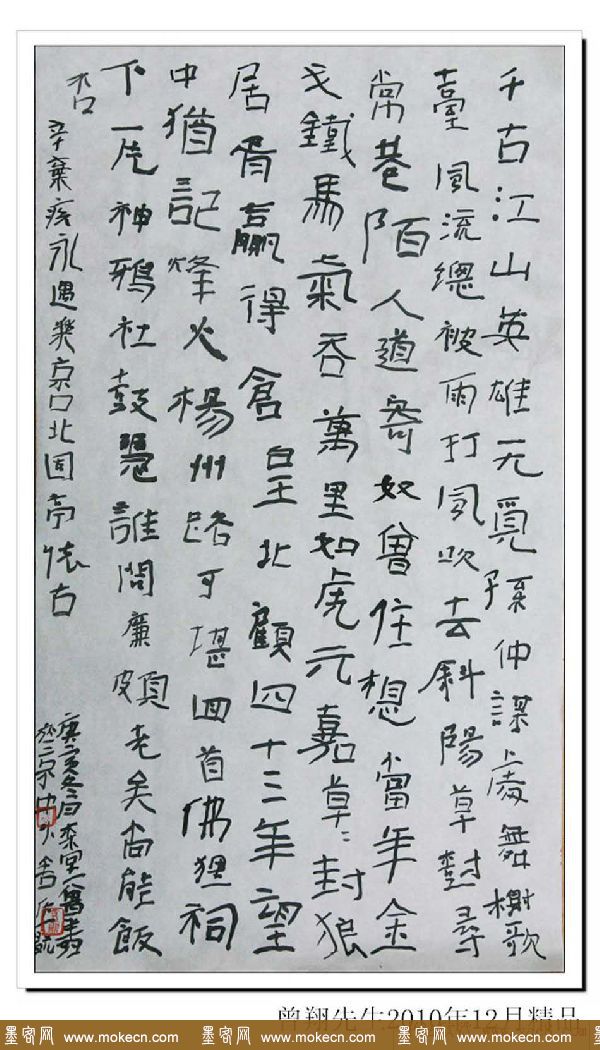 千古江山英雄无觅孙仲謀處舞榭歌
臺風流總被雨打風吹去斜陽草對尋
常巷陌人道寄奴曾住想當年金
戈鐵馬氣吞萬里如虎元嘉草草封狼
居胥贏得倉皇北顧四十三年望
中猶記烽火楊州路可堪回首佛狸祠
下一片神鴉社鼓憑誰問廉頗老矣尚能飯
否
辛棄疾永遇樂京口北固亭懷古
曾翔先生2010年12月精品
墨客网 www.mokecn.com 墨客网 www.mokecn.com 墨客网 www.mokecn.com